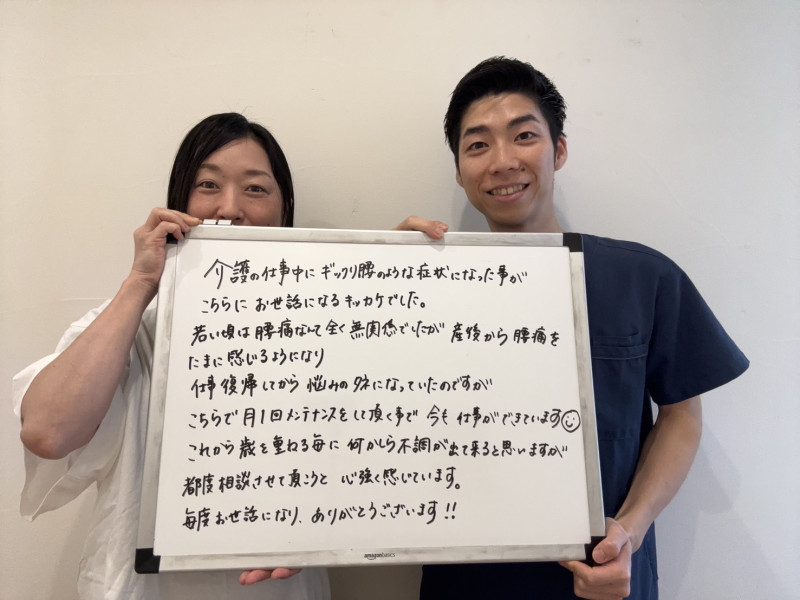 介護の仕事中に ギックリ腰のような症状になった事が
こちらに お世話になるキッカケでした。
若い頃は 腰痛なんて 全く 無関係でしたが 産後から 腰痛を
たまに 感じるようになり
仕事 復帰してから 悩みの タネになっていたのですが
こちらで 月1回 メンテナンスをして頂く事で 今も 仕事ができています☺
これから 歳を重ねる毎に 何かしら 不調が出て来ると思いますが
都度相談させて頂こうと 心強く感じています。
毎度お世話になり、ありがとうございます!!
amazonbasics